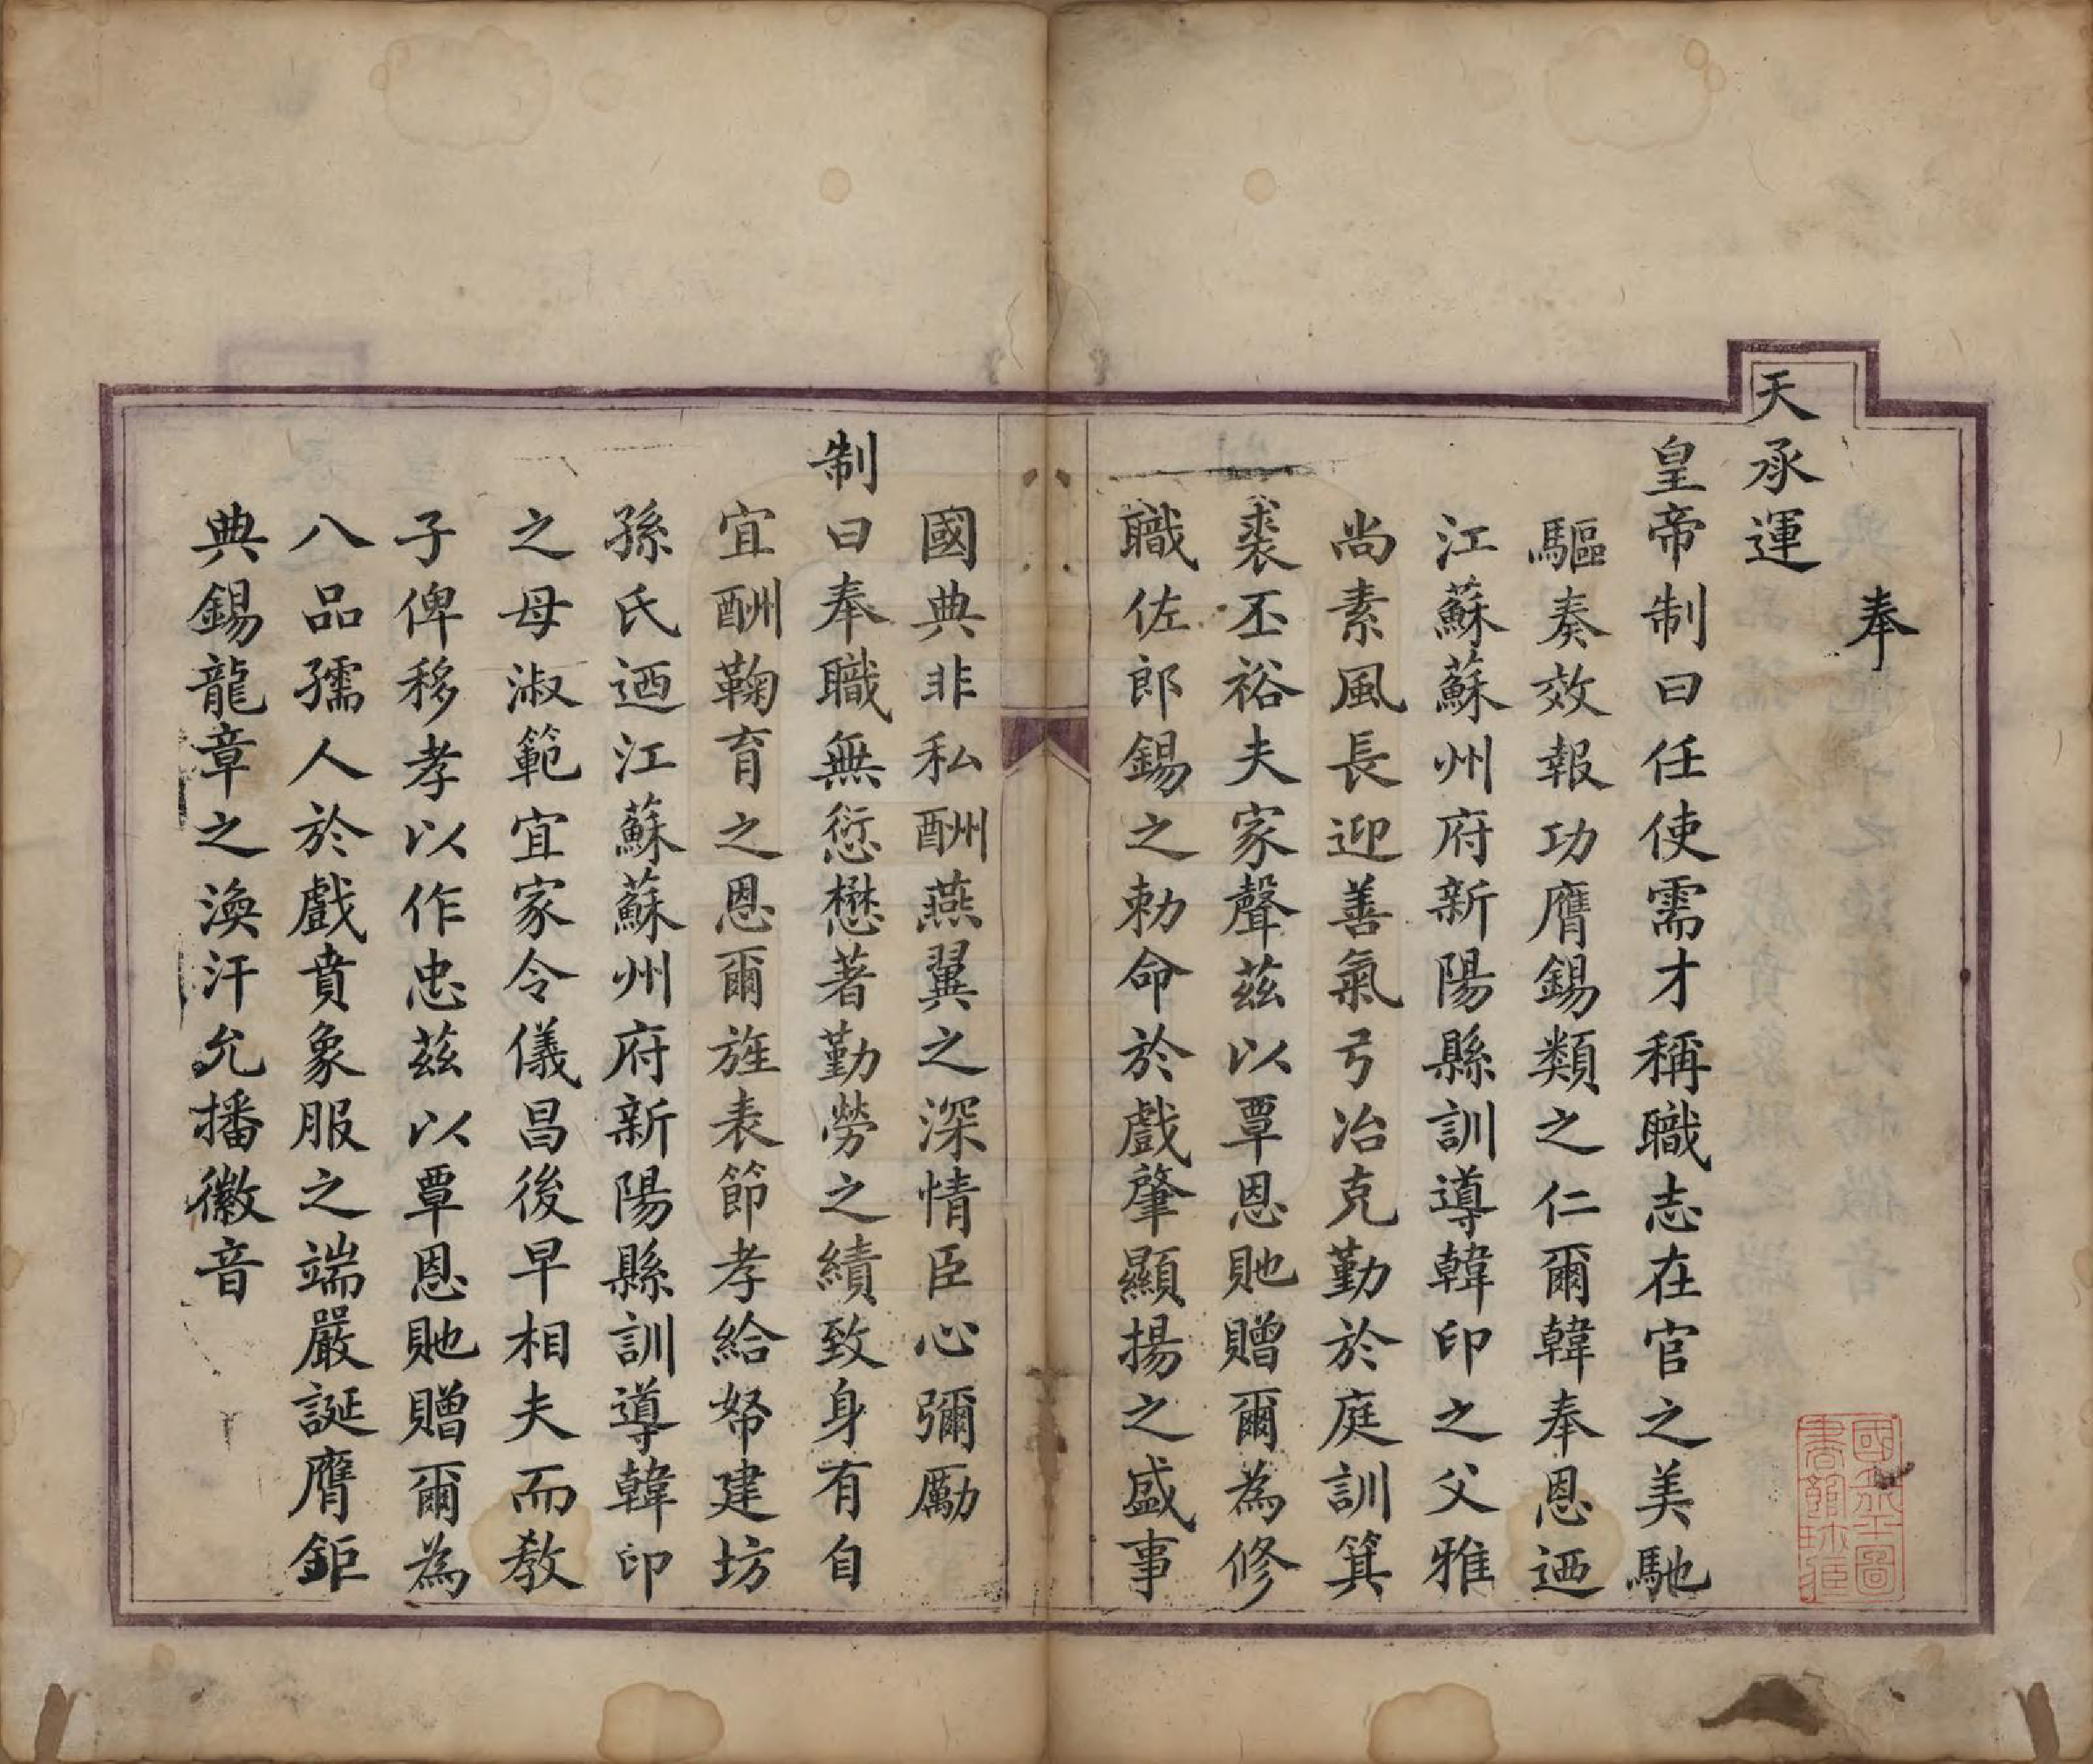 奉
天承運
皇帝制曰任使需才稱職志在官之美馳
驅奏效報功膺錫類之仁爾韓奉恩迺
江蘇蘇州府新陽縣訓導韓印之父雅
尚素風長迎善氣弓冶克勤於庭訓箕
裘丕裕夫家聲茲以覃恩貤贈爾為修
職佐郎錫之勅命於戲肇顯揚之盛事
國典非私酬燕翼之深情臣心彌勵
制曰奉職無愆懋著勤勞之績致身有自
宜酬鞠育之恩爾旌表節孝給帑建坊
孫氏迺江蘇蘇州府新陽縣訓導韓印
之母淑範宜家令儀昌後早相夫而教
子俾移孝以作忠茲以覃恩貤贈爾為
八品孺人於戲賁象服之端嚴誕膺鉅
典錫龍章之渙汗允播徽音